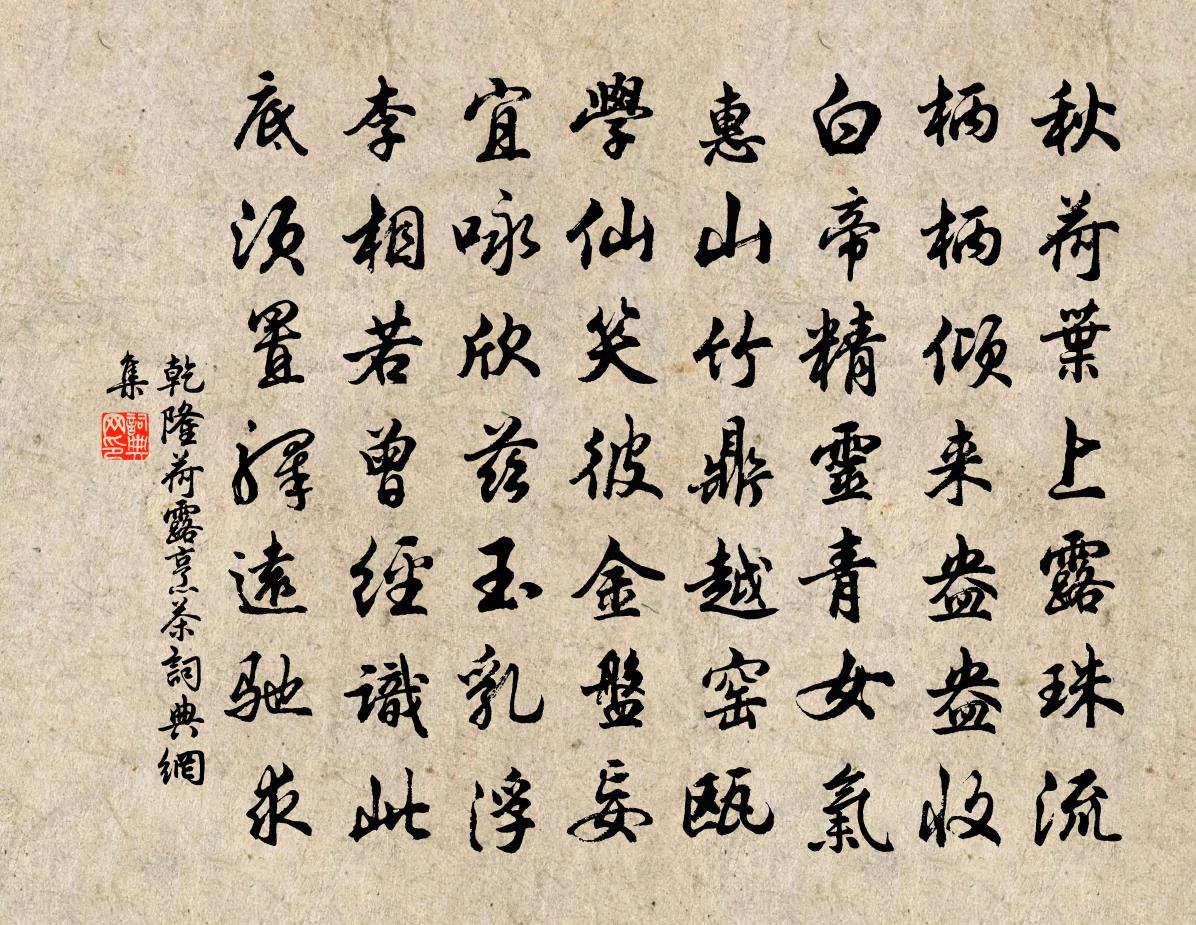 秋荷葉上露珠流
柄柄傾来盎盎收
白帝精靈青女氣
惠山竹鼎越窑甌
學仙笑彼金盤妄
宜咏欣兹玉乳浮
李相若曾經識此
底須置驛遠馳求
乾隆荷露烹茶詞典網
集
詞典网印